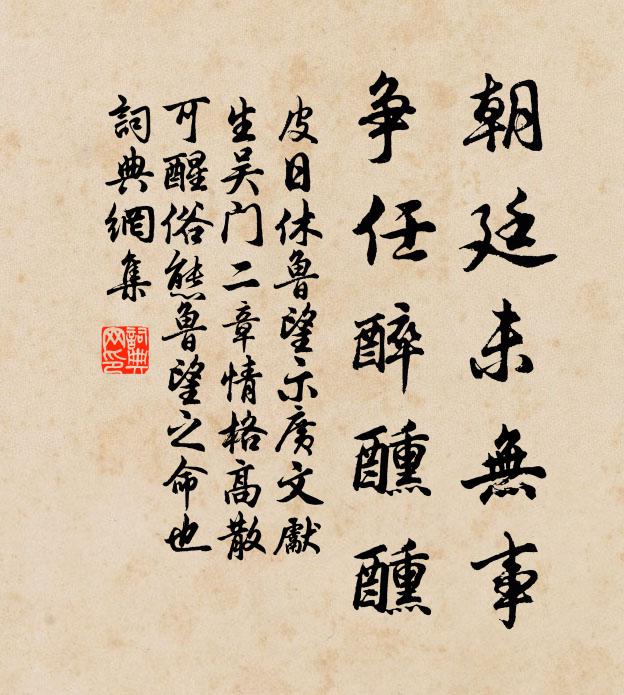 朝廷未無事
争任醉醺醺
皮日休魯望示廣文獻
生吴门二章情格高散
可醒俗態魯望之命也
詞典網集
詞典网印